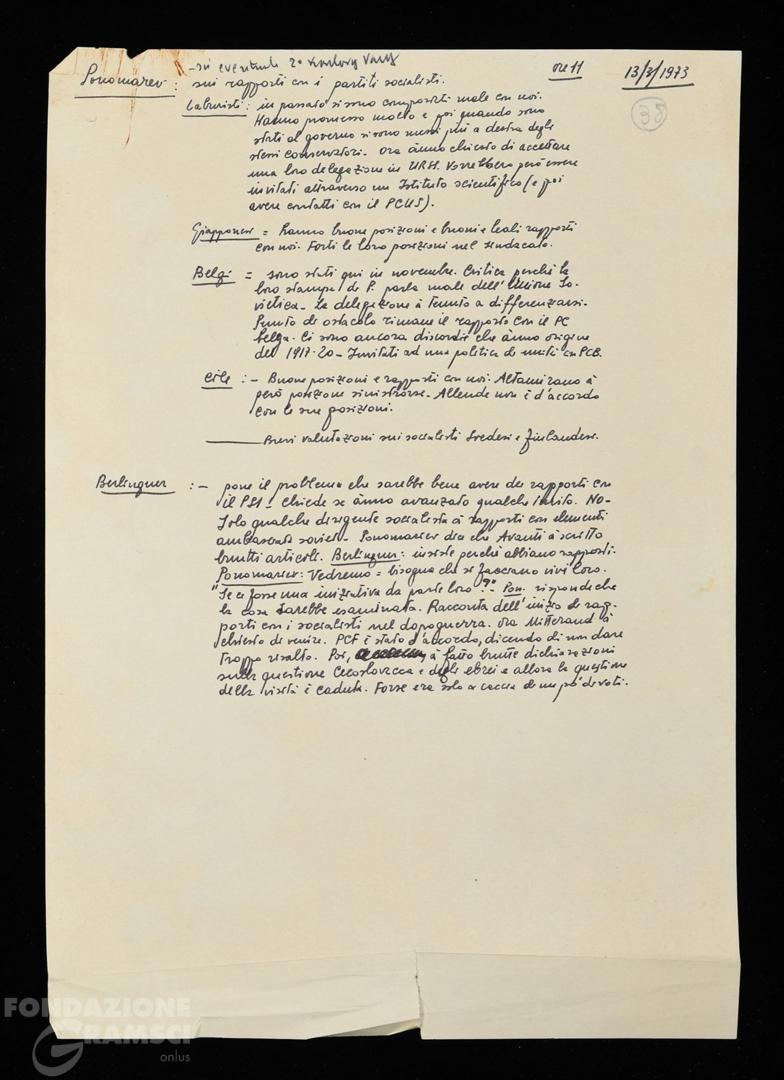 - su eventuale 2a
ore 11
13/3/1973
38
Ponomarev : sui rapporti con i partiti socialisti.
Laburisti : in passato si sono comportati male con noi.
Hanno promesso molto e poi quando sono
stati al governo si sono messi più a destra degli
stessi conservatori. Ora ànno chiesto di accettare
una loro delegazione in URSS. Vorrebbero però essere
invitati attraverso un Istituto scientifico (e poi
avere contatti con il PCUS).
Giapponesi = hanno buone posizioni e buoni e leali rapporti
con noi. Forti le loro posizioni nel sindacato.
Belgi = sono stati qui in novembre. Critica perché la
loro stampa di P. parla male dell'Unione So-
vietica. La delegazione à tenuto a differenziarsi.
Punto di ostacolo rimane il rapporto con il PC
belga. Ci sono ancora discordie che ànno origine
del 1917-20 - Invitati ad una politica di unità con PCB.
Cile : - Buone posizioni e rapporti con noi. Altamirano à
però posizione sinistrorse. Allende non è d'accordo
con le sue posizioni.
Brevi valutazioni sui socialisti svedesi e finlandesi.
Berlinguer : - pone il problema che sarebbe bene avere dei rapporti con
il PSI - chiede se ànno avanzato qualche invito. NO -
Solo qualche dirigente socialista à rapporti con elementi
ambasciata soviet. - Ponomarev dice che Avanti à scritto
brutti articoli. Berlinguer : insiste perché abbiano rapporti.
Ponomarev : Vedremo = bisogna che si facciano vivi loro.
"Se ci fosse una iniziativa da parte loro?" - Pon. risponde che
la cosa sarebbe esaminata. Racconta dell'inizio di rap-
porti con i socialisti nel dopoguerra. Ora Mitterand à
chiesto di venire. PCF è stato d'accordo, dicendo di non dare
troppo risalto. Poi, à fatto brutte dichiarazioni
sulla questione Cecoslovacca e degli ebrei e allora la questione
della visita è caduta. Forse era solo a caccia di un po' di voti.
FONDAZIONE
GRAMSCI
onlus